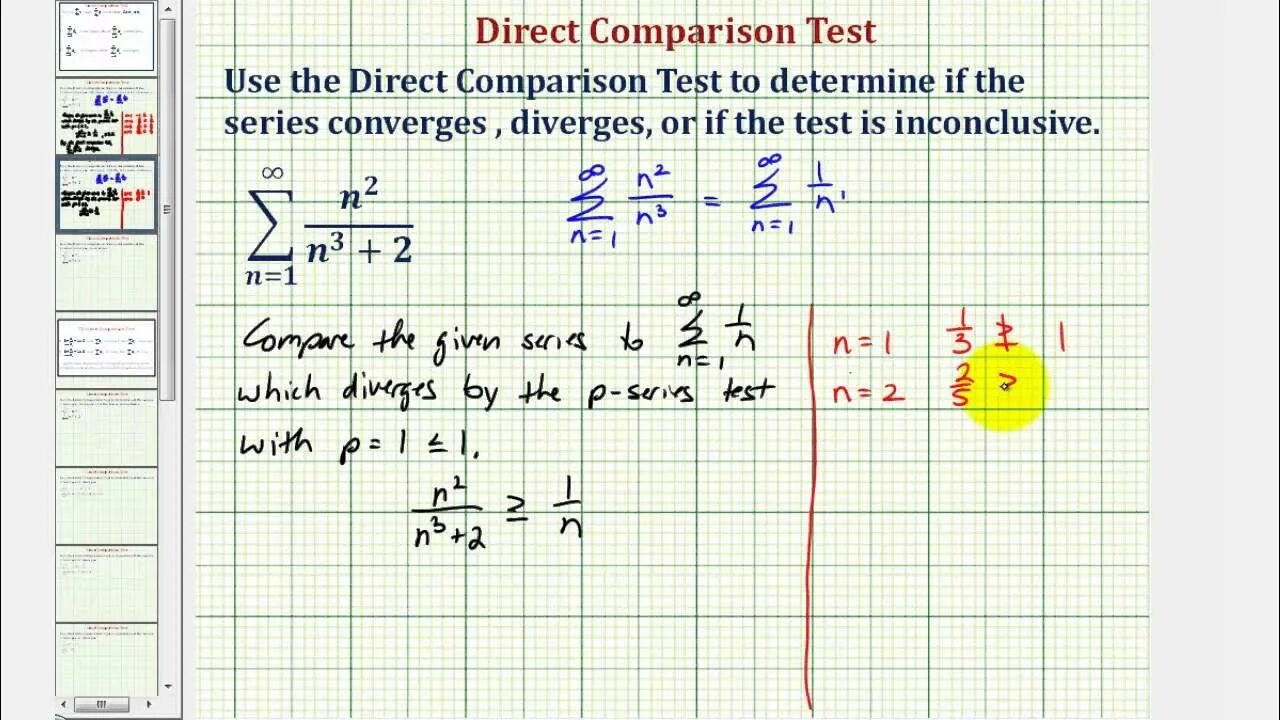 Direct Comparison Test
Use the Direct Comparison Test to determine if the
series converges , diverges, or if the test is inconclusive.
∑_{n=1}^{∞} n²/(n³ + 2)
∑_{n=1}^{∞} n²/n³ = ∑_{n=1}^{∞} 1/n.
Compare the given series to ∑_{n=1}^{∞} 1/n
which diverges by the p-series test
with p = 1 ≤ 1.
n²/(n³+2) ≥ 1/n
n = 1 1/3 ≱ 1
n = 2 2/5 >